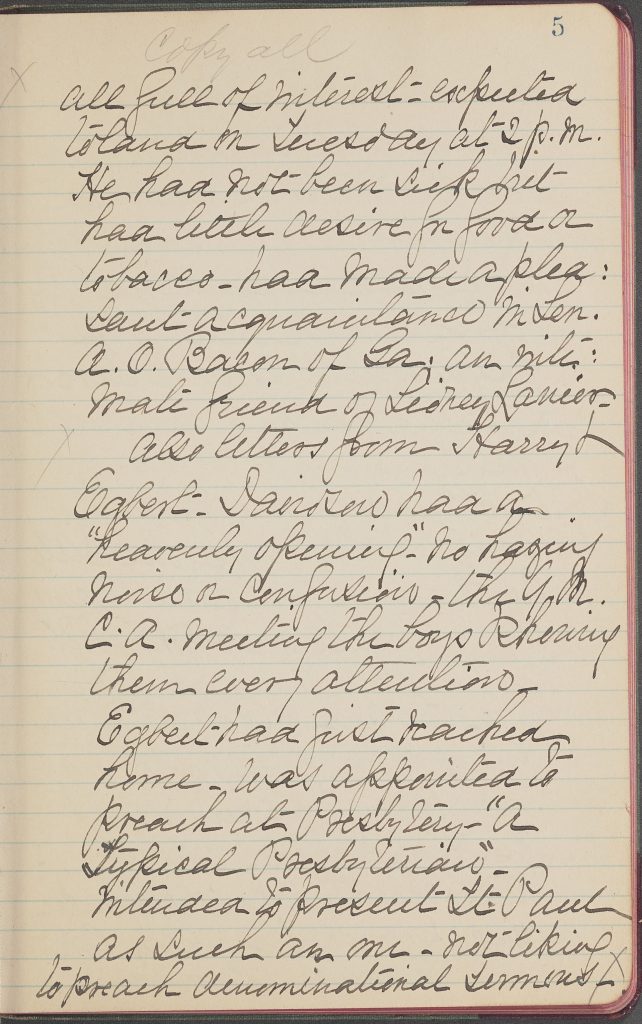 5
copy all
all full of interest - expected
to land on Tuesday at 2 p.m.
He had not been sick but
had little desire for food or
tobacco - had made a plea:
sant acquaintance in Sen.
A. O. Bacon of Ga. an inti:
mate friend of Sidney Lanier -
also letters from Harry &
Egbert - Davidson had a
"heavenly opening" - no hazing
noise or confusion - the Y. M.
C. A. meeting the boys & showing
them every attention -
Egbert had just reached
home - was appointed to
preach at Presbytery - "A
typical Presbyterian" -
intended to present St. Paul
as such an one - not liking
to preach denominational sermons /